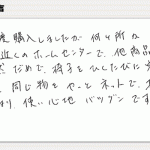 度購入しましたが 何ヶ所か
近くのホームセンターで、他商品
だめで、椅子をひくたびに
同じ物をやっとネットで
り、使い心地 バツグンです